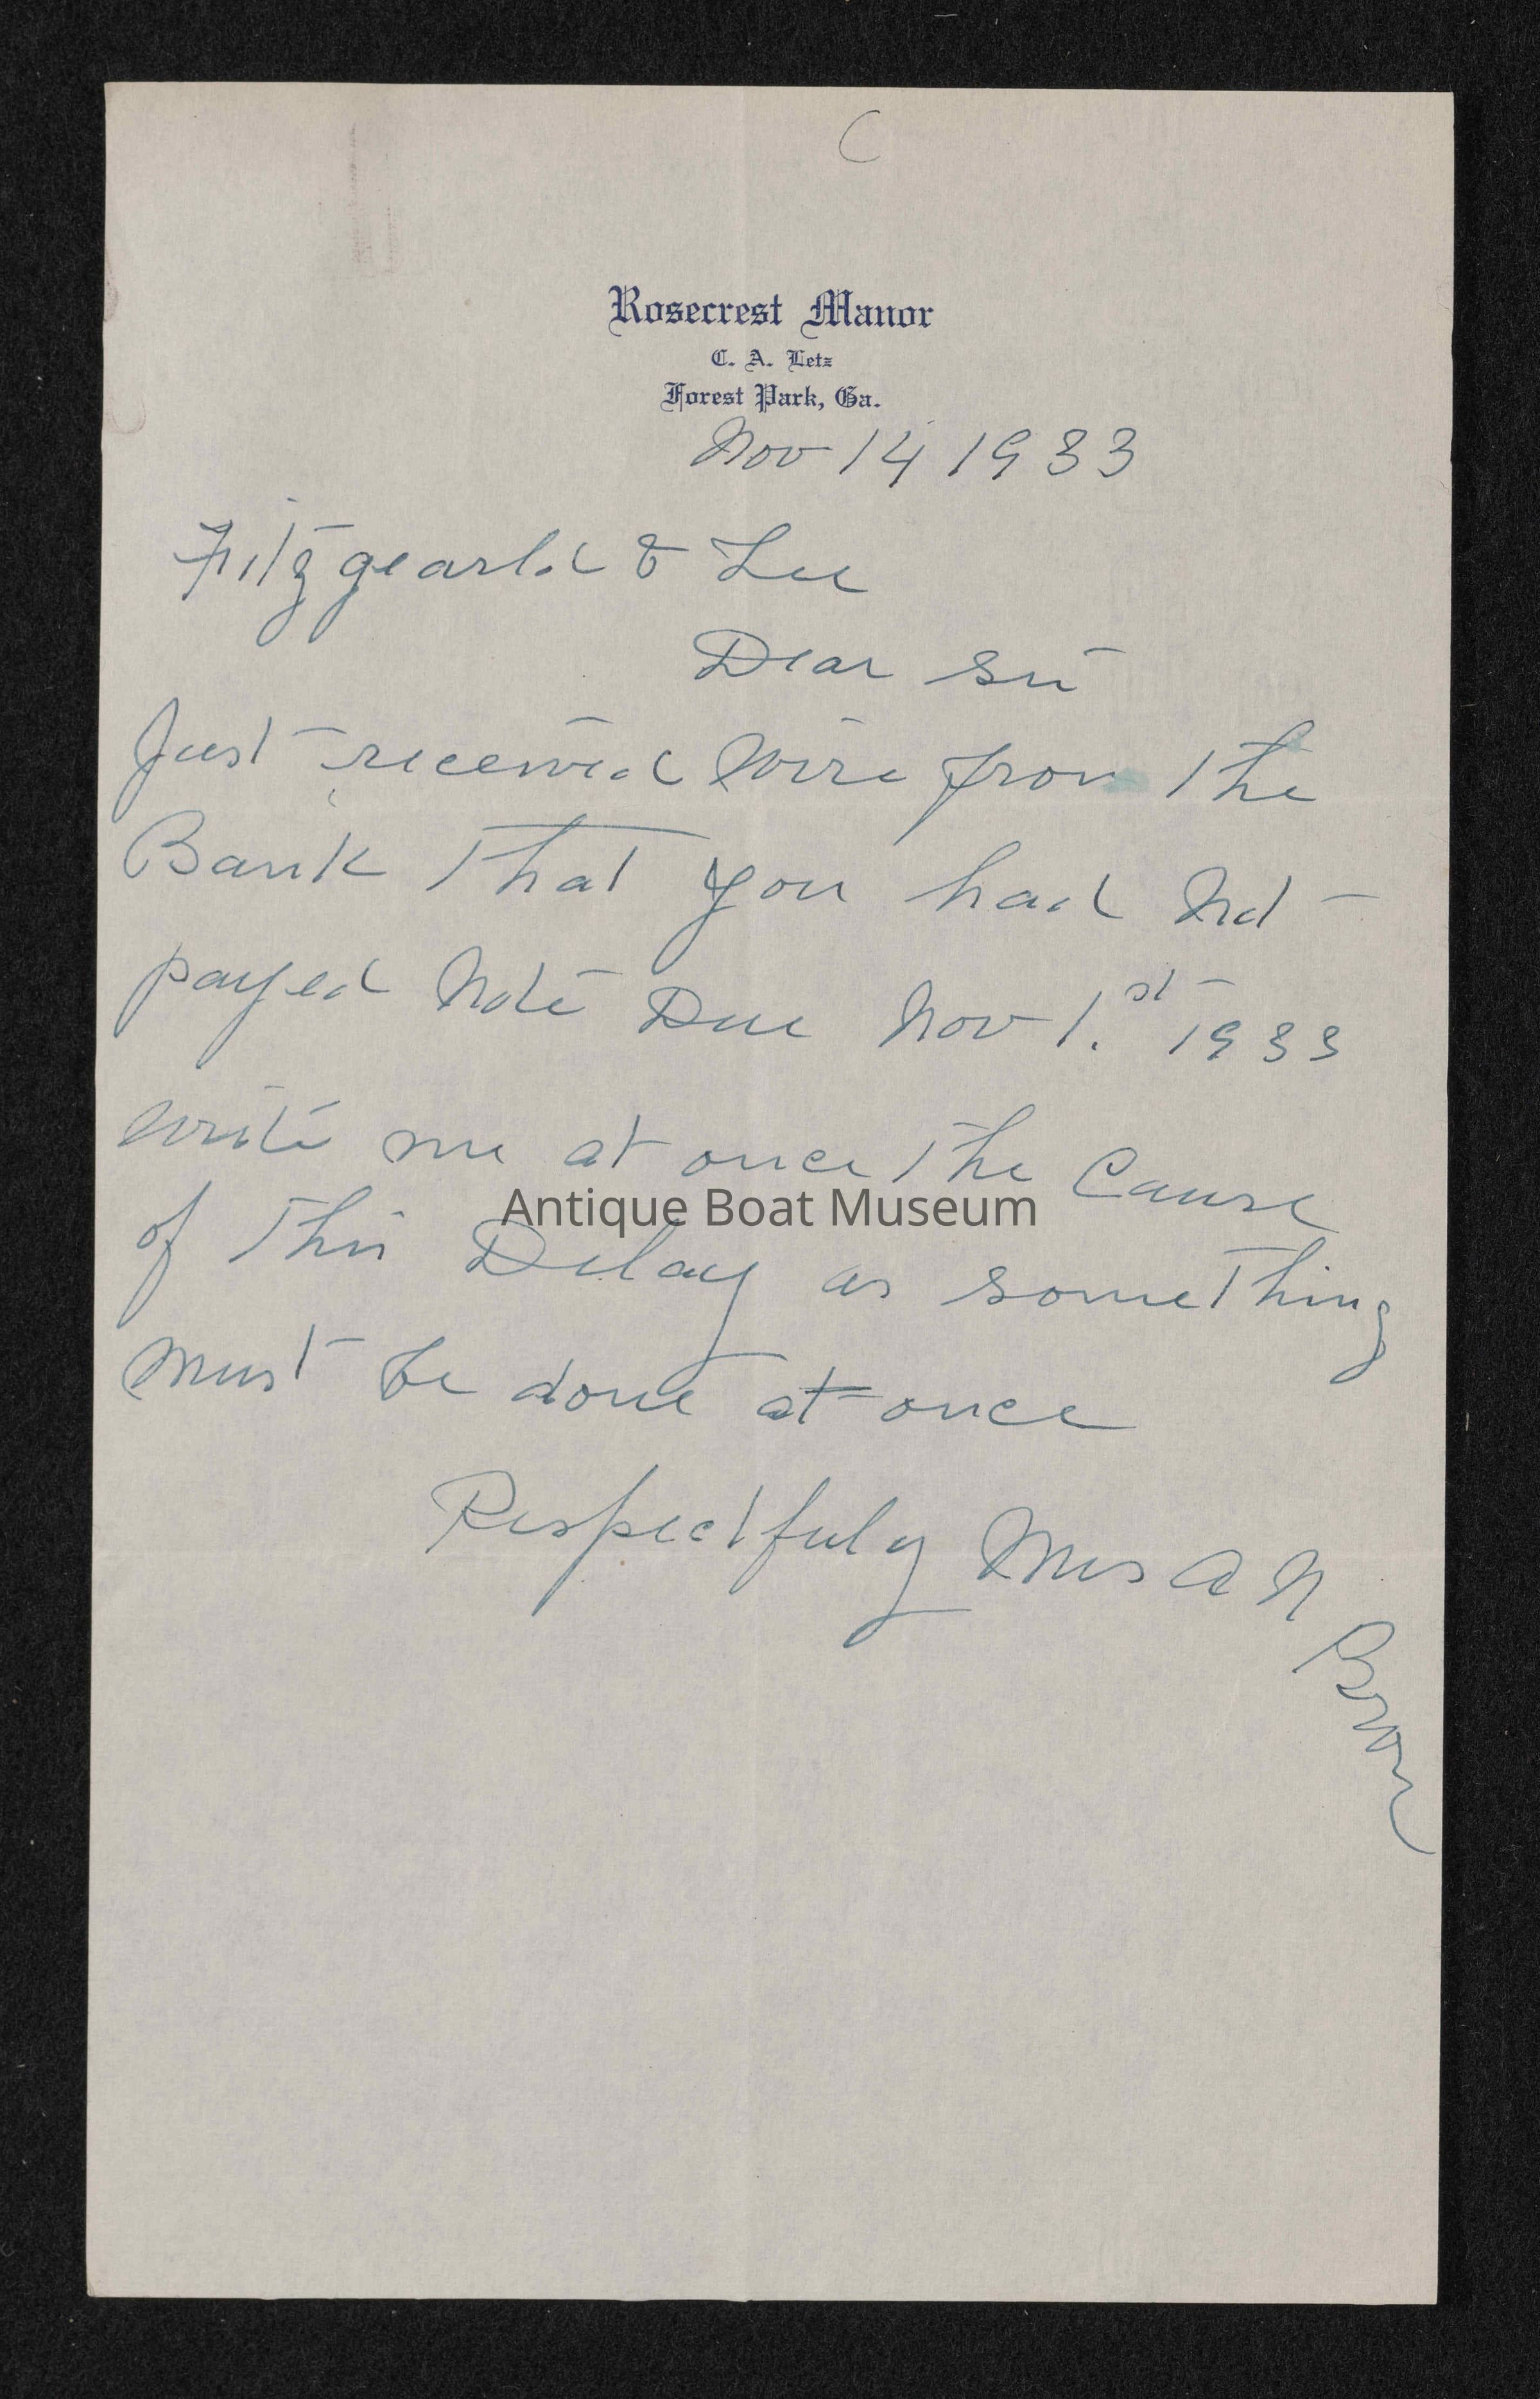 C
Rosecrest Manor
C. A. Letz
Forest Park, Ga.
Nov 14 1933
Fitzgearld & Lee
Dear Sir
Just received wire from the
Bank that you had Not
payed Note Due Nov 1.st 1933
write me at once the Cause
Antique Boat Museum
of this Delay as something
must be done at once
Respectfuly Mrs A N
Brown